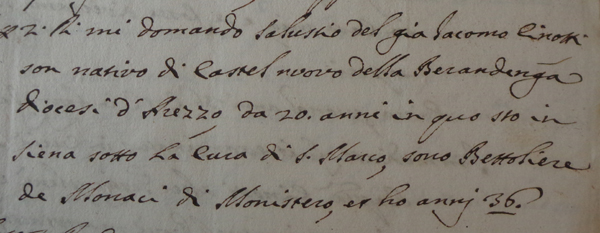 22. Io mi domando Salustio del già Jacomo Cinotti
son nativo di Castel nuovo della Berandenga
diocesi d'Arezzo da 20. anni in quà sto in
siena sotto la Cura di S. Marco, sono Bettoliere
de Monaci di Monistero, et ho annj 36.